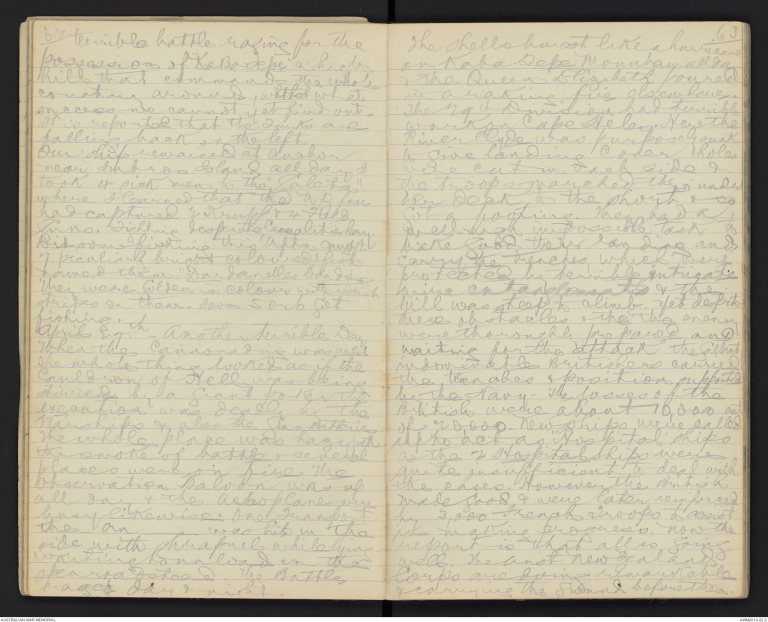 62
terrible battle raging for the
possession of "Kaba Tepe" a high
hill that commands the whole
country around, with what
success we cannot yet find out.
It is reported that the Turks are
falling back on the left.
Our ship remained at Anchor
near Imbros Island all day &
took 4 sick men to the "Galeka"
where I learned that the
had captured 2 Krupp & 4 Field
Guns. Fighting desperate
Did some fishing this Afternoon
7 peculiar bright coloured fish
named them "Dardanelles
They were Golden in colour with
stripes
fishing.
April 27th. - Another terrible Day
When the Cannonading was
the whole thing looked as if the
Cauldron of Hell was being
stirred by a Giant Poker the
execution was deadly in the
Warships & also the
The whole place was hazy with
the smoke of battle & several
places were on fire the
observation Baloon was up
all day & the Aeroplanes were
busy likewise. One Transport
the "An      was hit in the
side with Shrapnel while
waiting to unload in the
open roadstead. The Battle
raged day & night.
63
The shells burst like a hurricane
on Kaba Tepe Monday all day
& the Queen Elizabeth poured
in a raking fire elsewhere.
The 29th Division had terrible
work on Cape Helles. Here the
River Clyde was purposely sunk
to give landing Cover holes
were cut in each side &
the troops marched thro under
her deck to the shore & so
got a footing. They had a
well nigh impossible task to
make good their landing and
carry the trenches which were
protected by terrible intricate
wire entanglements & the
hill was steep to climb. Yet despite
these obstacles & tho the enemy
were thoroughly prepared and
waiting for the attack the Gallant
indomitable Britishers carried
the trenches & position supported
by the Navy. The losses of the
British were about 10,000 out
of 20,000 New ships were called
up to act as "Hospital" ships
as the 2 Hospital ships were
quite insufficient to deal with
the cases. However the British
made good & were later reinforced
by 3,000 French troops & assist
in making progress. now the
report is that all is going
well. The Aust New Zealand
Corps are doing remarkable
& carrying the Guns before them.
AUSTRALIAN WAR MEMORIAL
AWM2019.22.2